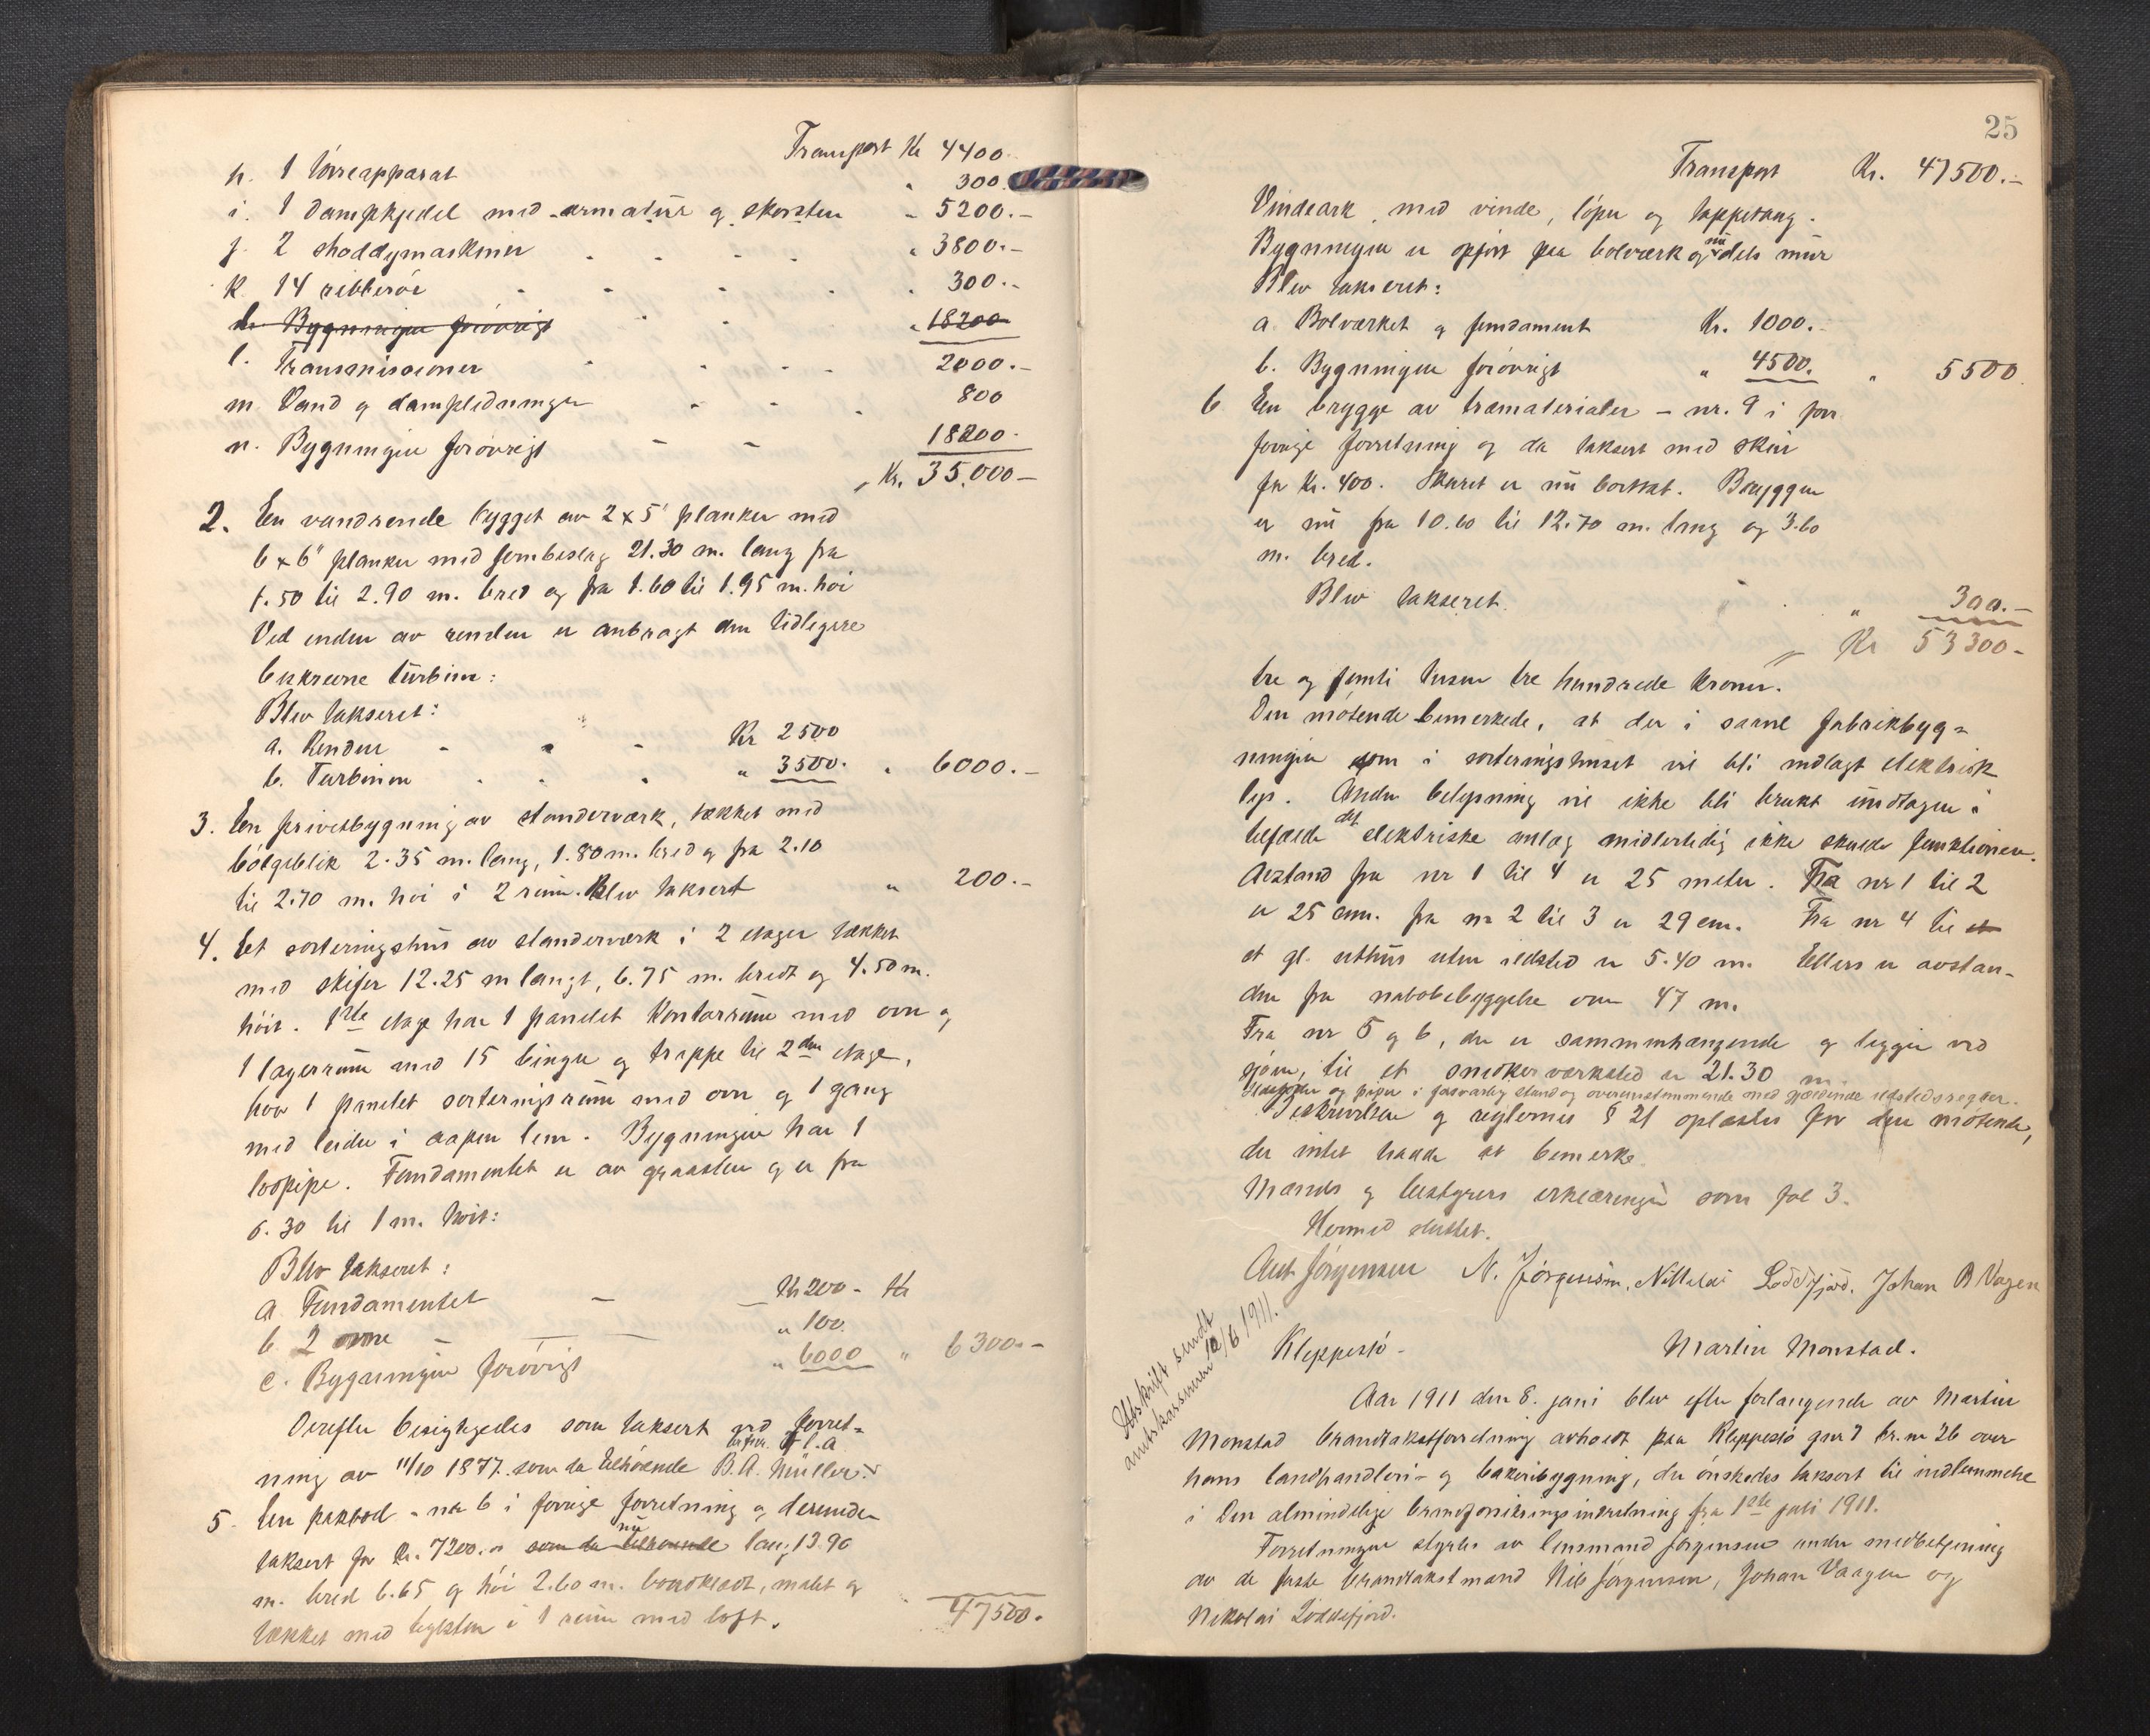 Transport Kr 4400.-
h. 1 tørreapparat " 300.
i. 1 dampkjedel med armatur og skorsten " 5200.-
j. 2 shoddymaskiner " 3800.-
k. 14 ribberør " 300.-
Bygningen forøvrigt " 18200
l. Transmissioner 2000.-
m. Vand og dampledninger 800
n. Bygningen forøvrigt 18200.
Kr. 35.000-
2. En vandrende bygget av 2 x 5" planker med
6 x 6" planker med jernbeslag 21.30 m. lang fra
1.50 til 2.90 m. bred og fra 1.60 til 1.95 m. høi
Ved enden av renden er anbragt den tidligere
beskrevne turbine:
Blev takseret:
a. Renden Kr 2500
b. Turbinen " 3500. " 6000.-
3. En privetbygning av standerværk, tækket med
bølgeblik 2.35 m. lang, 1.80 m. bred og fra 2.10
til 2.70 m. høi i 2 rum. Blev taksert " 200.-
4. Et sorteringshus av standerværk i 2 etager tækket
med skifer 12.25 m langt, 6.75 m. bredt og 4.50 m.
høit. 1ste etage har 1 panelet kontorrum med ovn og
1 lagerrum med 15 binger og trappe til 2den etage,
hvor 1 panelet sorteringsrum med ovn og 1 gang
med leider i aapen lem. Bygningen har 1
løspipe. Fundamentet er av graasten og er fra
0.30 til 1 m. høit:
Blev takseret:
a. Fundamentet Kr 200 - Kr
b. 2 ovne " 100.
c. Bygningen forøvrigt " 6000 " 6300.-
Derefter besigtigedes som taksert ved forret-
ning av 11/10 1877. som da tilhørende B. A. Müller:
5. En pakbod - nr 6 i forrige forretning og derunder
taksert for Kr. 7200.- som da tilhørende nu lang 13.90
m. bred 6.65 og høi 2.60 m. bordklædt, malet og
tækket med teglsten i 1 rum med loft.
47500.-
25
Transport Kr. 47500.-
Vindeark, med vinde, løper og tappetang.
Bygningen er opført paa bolværk og nu dels mur
Blev takseret:
a. Bolværket og fundament Kr. 1000.-
b. Bygningen forøvrigt " 4500. " 5500.
6 En brygge av træmaterialer - nr. 9 i
forrige forretning og da taksert med skur
for Kr. 400. Skuret er nu borttat. Bryggen
er nu fra 10.60 til 12.70 m. lang og 3.60
m. bred.
Blev takseret. " 300.-
Kr 53300-
tre og femti tusen tre hundrede kroner.
Den møtende bemerkede, at der i saavel fabrikbyg-
ningen som i sorteringshuset vil bli indlagt elektrisk
lys. Anden belysning vil ikke bli brukt undtagen i
tilfælde det elektriske anlæg midlertidig ikke skulde funktionere.
Avstand fra nr 1 til 4 er 25 meter. Fra nr 1 til 2
er 25 cm. fra nr 2 til 3 er 29 cm. Fra nr 4 til et
et gl. uthus uten ildsted er 5.40 m. Ellers er avstan-
den fra nabobebyggelse over 47 m.
Fra nr 5 og 6, der er sammenhængende og ligger ved
sjøen, til et snedkerværksted er 21.30 m.
og piper i forsvarlig stand og overensstemmende med gjældende ildstedsregler.
Beskrivelsen og reglernes § 21 oplæstes for den møtende,
der intet hadde at bemerke.
Mænds og bestyrers erklæringer som fol 3.
Hermed sluttet.
Ant Jørgensen N. Jørgensen. Nikolai Loddefjord. Johan B Vagen
Utskrift sendt
amtskassereren 12/6 1911.
Kleppestø - Martin Monstad.
Aar 1911 den 8. juni blev efter forlangende av Martin
Monstad brandtakstforretning avholdt paa Kleppestø gnr 7 br. nr 26 over
hans landhandleri- og bakeribygning, der ønskedes taksert til indlemmelse
i Den almindelige brandforsikringsindretning fra 1ste juli 1911.
Forretningen styres av lensmand Jørgensen under medbetjening
av de faste brandtakstmænd Nils Jørgensen, Johan Vaagen og
Nikolai Loddefjord.